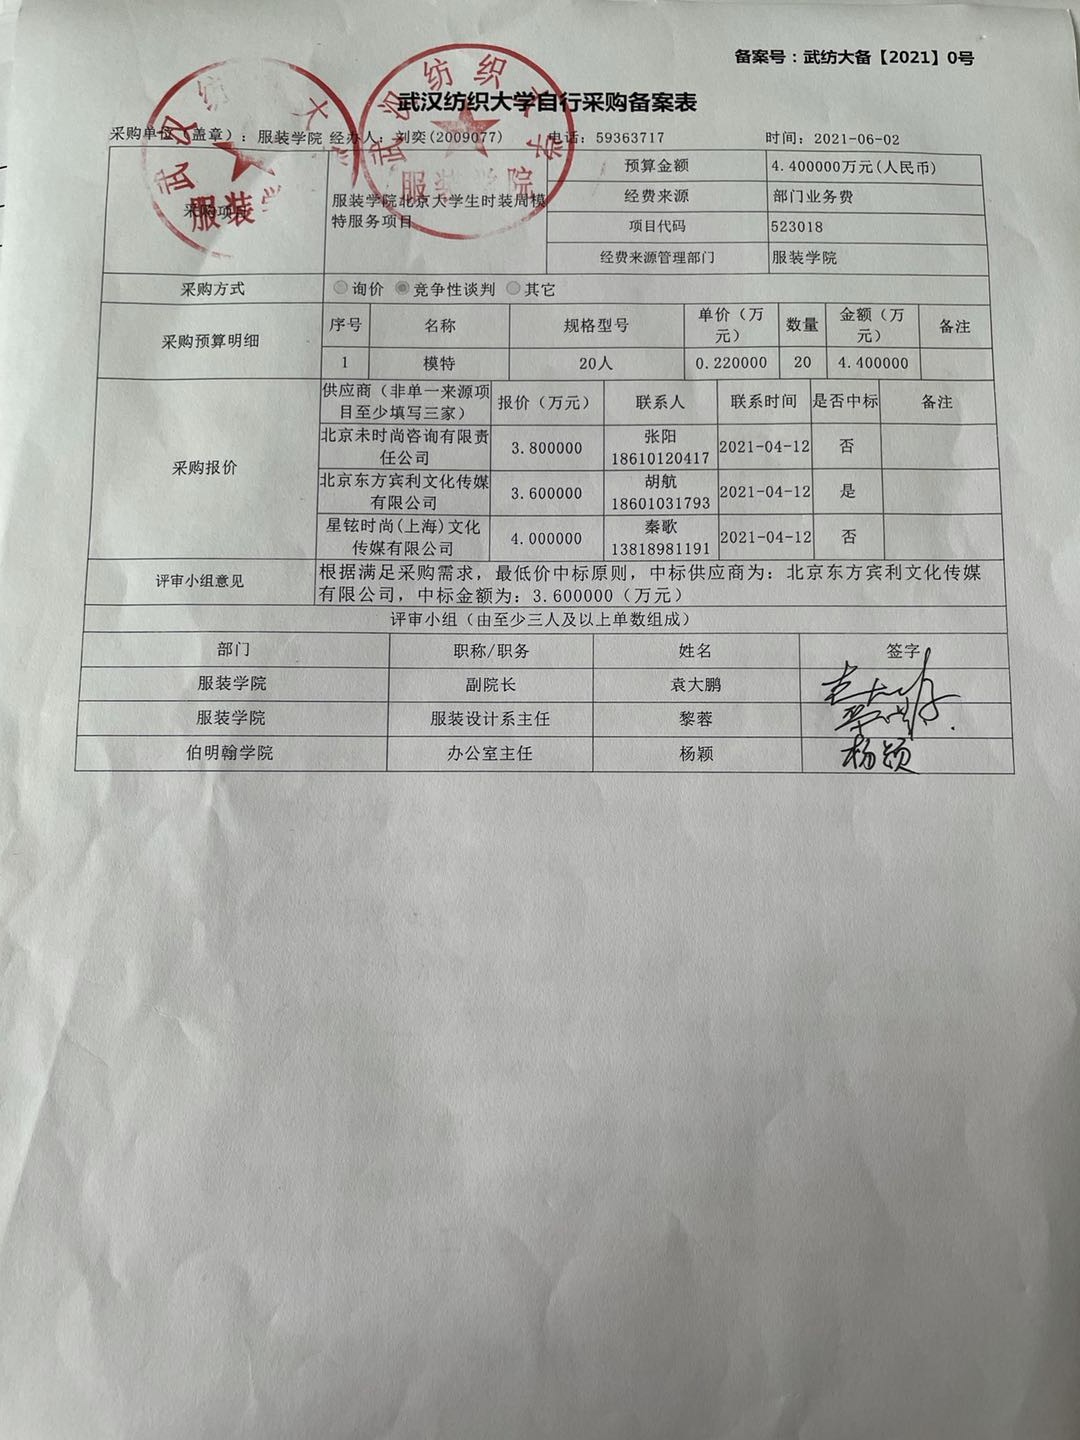 备案号：武纺大备【2021】0号
武汉纺织大学自行采购备案表
采购单位（盖章）：服装学院 经办人：刘奕(2009077) 电话：59363717 时间：2021-06-02
武汉纺 大学
服装
武汉纺织大学
服装学院
采购项
服装学院北京大学生时装周模
特服务项目
预算金额 4.400000万元(人民币)
经费来源 部门业务费
项目代码 523018
经费来源管理部门 服装学院
采购方式 询价 竞争性谈判 其它
采购预算明细
序号 名称 规格型号 单价（万
元） 数量 金额（万
元） 备注
1 模特 20人 0.220000 20 4.400000
采购报价
供应商（非单一来源项
目至少填写三家） 报价（万元） 联系人 联系时间 是否中标 备注
北京未时尚咨询有限责
任公司 3.800000 张阳
18610120417 2021-04-12 否
北京东方宾利文化传媒
有限公司 3.600000 胡航
18601031793 2021-04-12 是
星铉时尚(上海)文化
传媒有限公司 4.000000 秦歌
13818981191 2021-04-12 否
评审小组意见
根据满足采购需求，最低价中标原则，中标供应商为：北京东方宾利文化传媒
有限公司，中标金额为：3.600000（万元）
评审小组（由至少三人及以上单数组成）
部门 职称/职务 姓名 签字
服装学院 副院长 袁大鹏 袁大鹏
服装学院 服装设计系主任 黎蓉
伯明翰学院 办公室主任 杨颖 杨颖